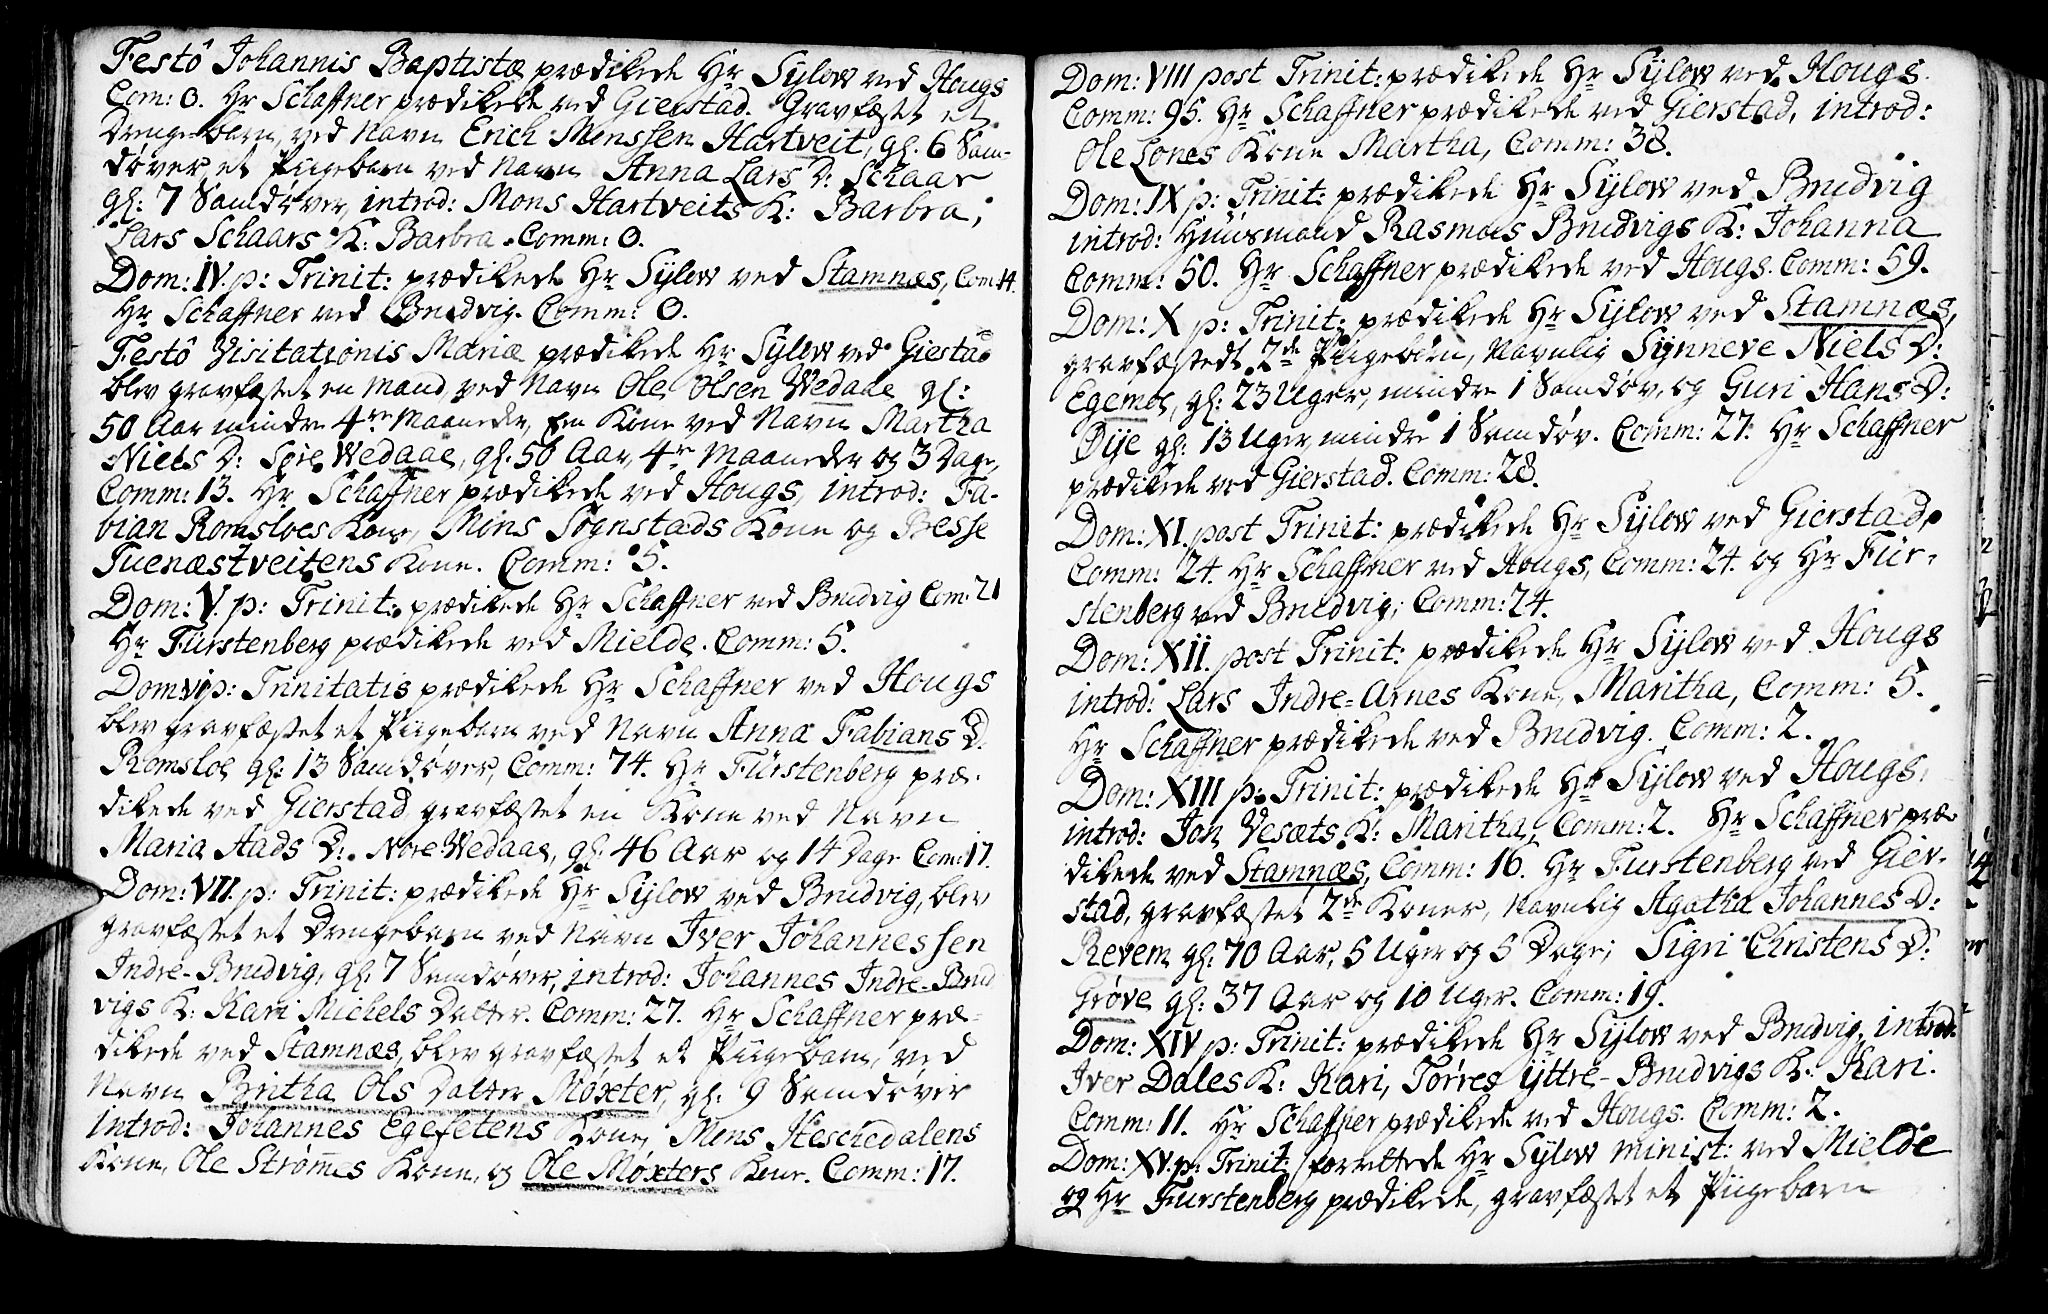 Festô Johannis Baptistæ prædikede Hr Sylow ved Hougs
Com: 0. Hr Schaffner prædikede ved Gierstad. Gravfæstet et
Drengebarn, ved Navn Erich Monssen Hartveit, gl. 6 Sam-
døver, et Piigebarn ved Navn Anna Lars D: Schaar
gl: 7 Samdøver, introd: Mons Hartveits K: Barbra,
Lars Schaars K: Barbra. Comm: 0.
Dom: IV. p: Trinit: prædikede Hr Sylow ved Stamnæs, Com: 14.
Hr Schaffner ved Brudvig. Comm: 0.
Festô Visitationis Mariæ prædikede Hr Sylow ved Giestad
blev gravfæstet en Mand ved Navn Ole Olsen Wedaae gl:
50 Aar mindre 4re Maaneder, En Kone ved Navn Martha
Niels D: Søre Wedaae, gl. 50 Aar, 4re Maaneder og 3 Dage,
Comm: 13. Hr Schaffner prædikede ved Hougs, introd: Fa-
bian Romsloes Kone, Mons Sognstads Kone og Besse
Tuenæstveitens Kone. Comm: 5.
Dom: V. p: Trinit: prædikede Hr Schaffner ved Brudvig Com: 21
Hr Fürstenberg prædikede ved Mielde. Comm: 5.
Dom: VI p: Trinitatis prædikede Hr Schaffner ved Hougs
blev gravfæstet et Piigebarn ved Navn Anna Fabians D.
Romsloe gl: 13 Samdøver, Comm: 74. Hr Fürstenberg præ-
dikede ved Gierstad, gravfæstet en Kone ved Navn
Maria Aads D: Nore Wedaae, gl: 46 Aar og 14 Dage Com: 17.
Dom: VII. p: Trinit: prædikede Hr Sylow ved Brudvig, blev
gravfæstet et Drengebarn ved Navn Iver Johannessen
Indre-Brudvig, gl: 7 Samdøver, introd: Johannes Indre-Brud
vigs K: Kari Michels Datter. Comm: 27. Hr Schaffner præ-
dikede ved Stamnæs, blev gravfæstet et Piigebarn, ved
Navn Britha Ols Datter Møxter, gl: 9 Samdøver
introd: Johannes Egefetens Kone, Mons Heschedalens
Kone, Ole Strømes Kone, og Ole Møxters Kone. Comm: 17.
Dom: VIII post Trinit: prædikede Hr Sylow ved Hougs.
Comm: 95. Hr Schaffner prædikede ved Gierstad, introd:
Ole Lones Kone Martha, Comm: 38.
Dom: IX p: Trinit: prædikede Hr Sylow ved Brudvig
introd: Huusmand Rasmus Brudvigs K: Johanna
Comm: 50. Hr Schaffner prædikede ved Hougs. Comm: 59.
Dom: X p: Trinit: prædikede Hr Sylow ved Stamnæs,
gravfæstedt 2de Piigebørn, Navnlig Synneve Niels D:
Egemoe, gl: 23 Uger, mindre 1 Samdøv, og Guri Hans D:
Øije gl: 13 Uger, mindre 1 Samdøv. Comm: 27. Hr Schaffner
prædikede ved Gierstad. Comm: 28.
Dom: XI. post Trinit: prædikede Hr Sylow ved Gierstad,
Comm: 24. Hr Schaffner ved Hougs, Comm: 24. og Hr Für-
stenberg ved Brudvig; Comm: 24.
Dom: XII. post Trinit: prædikede Hr Sylow ved Hougs
introd: Lars Indre-Arnes Kone, Maritha, Comm: 5.
Hr Schaffner prædikede ved Brudvig. Comm: 2.
Dom: XIII p: Trinit: prædikede Hr Sylow ved Hougs,
introd: Jon Vesæts K: Maritha, Comm: 2. Hr Schaffner præ-
dikede ved Stamnæs, Comm: 16. Hr Furstenberg ved Gier-
stad, gravfæstet 2de Koner, Navnlig Agatha Johannes D:
Revem gl: 70 Aar, 5 Uger og 5 Dage; Sigri Christens D:
Grøve gl: 37 Aar og 10 Uger. Comm: 19.
Dom: XIV p: Trinit: prædikede Hr Sylow ved Brudvig, introd:
Iver Dales K: Kari, Tørres ÿttre-Brudvigs K: Kari.
Comm: 11. Hr Schaffner prædikede ved Hougs. Comm: 2.
Dom: XV. p: Trinit: forrettede Hr Sylow minist: ved Mielde
og Hr Furstenberg prædikede, gravfæstet et Piigebarn